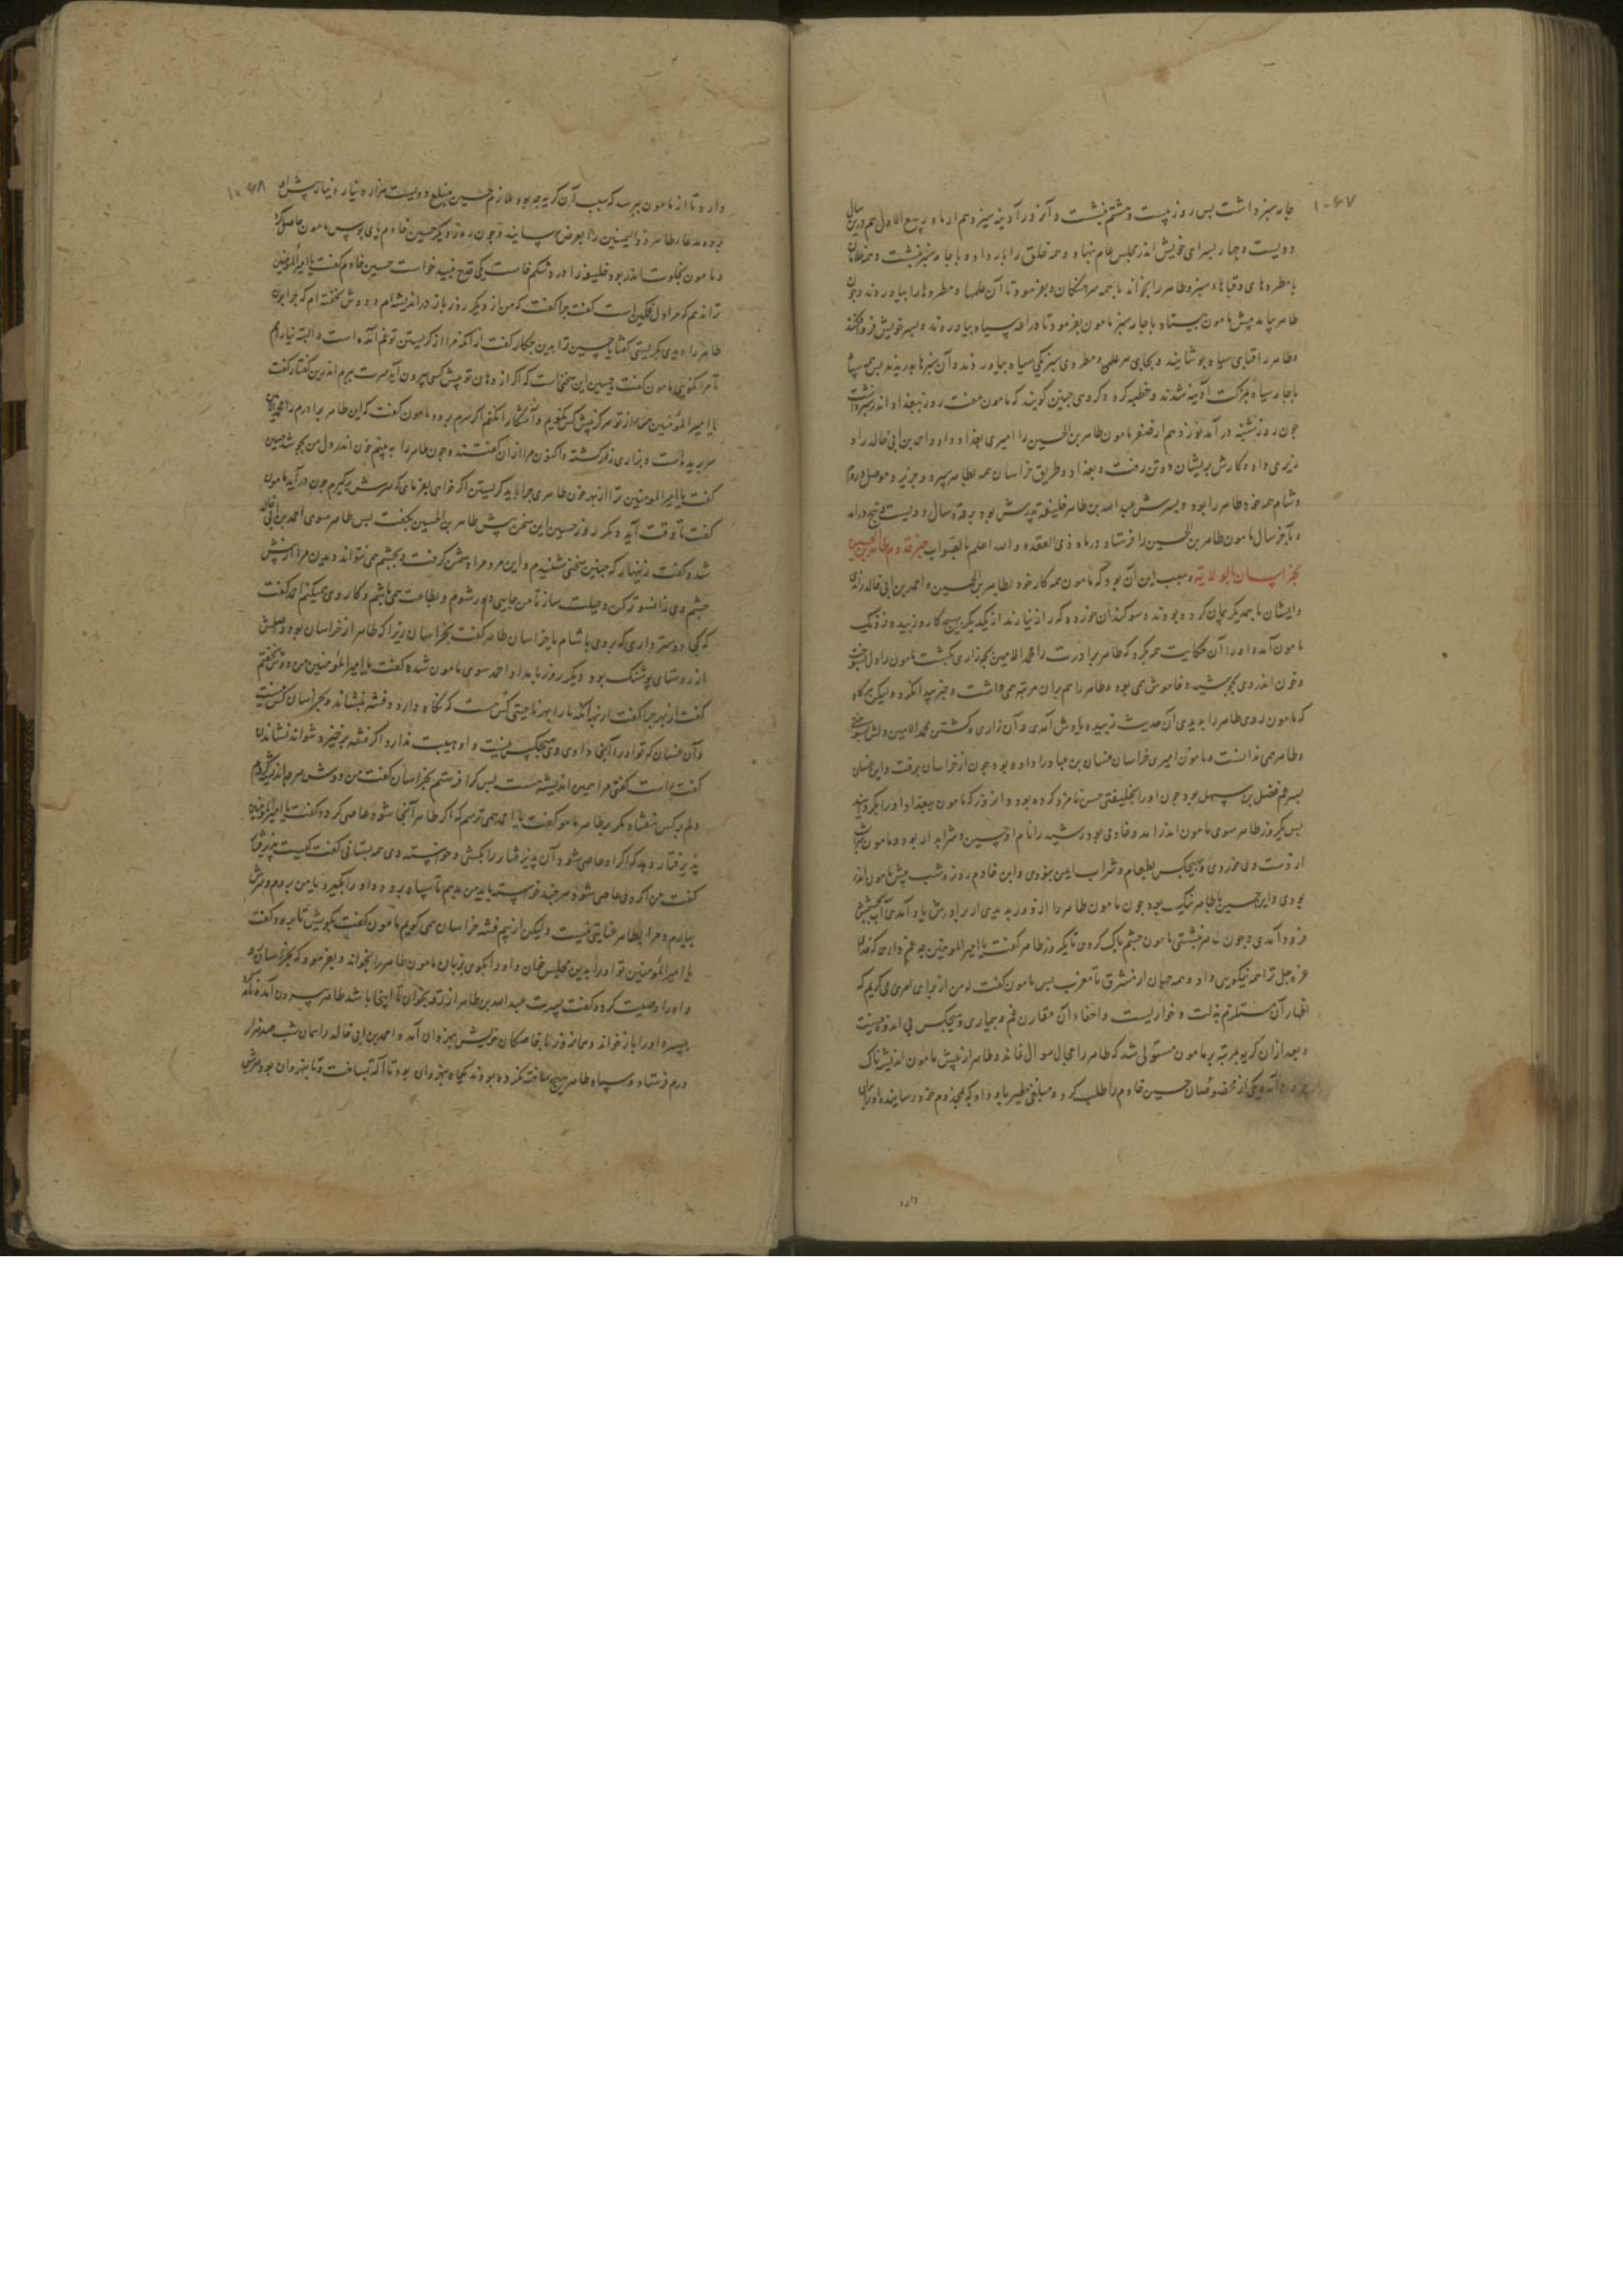 ۱۰۶۷
جامه سبز داشت پس روز بیست و هشتم بنشست و آن روز آدینه سیزدهم از ماه ربیع الاول هم درین سال
دویست و چهار بسرای خویش اندر مجلس عام بنهاد و همه خلق را بار داد و با جامه سبز بنشست و همه غلامان
با مطردهای و قباهاء سبز و طاهر را بخواند با همه سرهنگان و بفرمود تا آن علمها و مطردها را بیاوردند و چون
طاهر بیامد پیش مامون بیستاد با جامه سبز مامون بفرمود تا دراعه سیاه بیاوردند و بسر خویش فرو افکند
و طاهر را قبای سیاه پوشانید و بجای هر علمی و مطردی سبز یکی سیاه بیاوردند و آن سبزها بدریدند پس همه سپاه
با جامه سیاه آدینه شدند و خطبه کرد و گروهی چنین گویند که مامون هفت روز ببغداد اندر سبز داشت
چون روز شنبه در آمد نوزدهم از صفر مامون طاهر بن الحسین را امیری بغداد داد و احمد بن ابی خالد را و
زیری داد و کارش بریشان دو تن رفت و بغداد و طریق خراسان همه بطاهر سپرد و جزیره و موصل و روم
و شام همه خود طاهر را بود و پسرش عبدالله بن طاهر خلیفه پدرش بود برقه و سال دویست و پنج در آمد
و بآخر سال مامون طاهر بن الحسین را فرستاد در ماه ذی القعده والله اعلم بالصواب خبر قدوم طاهر بن الحسین
بخراسان بالولایة و سبب این آن بود که مامون همه کار خود بطاهر بن الحسین و احمد بن ابی خالد زدی
و ایشان با همدیگر پیمان کرده بودند و سوگندان خورده که راز نیارند از یکدیگر بهیچ کار و زبیده نزدیک
مامون آمد و او را آن حکایت همه بکرد که طاهر برادرت را محمد الامین بچه زاری بکشت مامون را دل بسوخت
و خون اندر وی بجوشید و خاموش همی بود و طاهر را هم بران مرتبه همی داشت و خبر پیدا نکرد و لیکن هرگاه
که مامون روی طاهر را بدیدی آن حدیث زبیده یادش آمدی و آن زاری و کشتن محمد الامین و دلش بسوختی
و طاهر همی ندانست و مامون امیری خراسان غسان بن عباد را داده بود چون از خراسان برفت و این غسان
پسر عم فضل بن سهل بود چون او را بخلیفتی حسن نامزد کرده بود و از وزر که مامون ببغداد او را بگردانید
پس یکروز طاهر سوی مامون اندر آمد و خادمی بود رشید را نام او حسین و شرابدار بود و مامون شراب
از دست وی خوردی و بهیچکس بطعام و شراب ایمن نبودی و این خادم روز و شب پیش مامون اندر
بودی و این حسین با طاهر نیک بود چون مامون طاهر را از دور بدیدی از برادرش یاد آمدی آب بچشمش
فرود آمدی و چون طاهر بنشستی مامون چشم پاک کردی تا یکروز طاهر گفت یا امیر المومنین چه غم داری که خدا
عز و جل ترا همه نیکویی داد و همه جهان از مشرق تا مغرب پس مامون گفت که من از برای امری می گریم که
اظهار آن مستلزم مذلت و خواریست و اخفاء آن مقارن غم و بیماری و هیچکس بی اندوه نیست
و بعد ازان گریه بمرتبه بر مامون مستولی شد که طاهر را مجال سوال نماند و طاهر از پیش مامون اندیشه ناک
آمده یکی از مخصوصان حسین خادم را طلب کرد و مبلغی خطیر باو داد که بمخدوم خود رسانیده او را بران
دارد
۱۰۶۸
دارد تا از مامون بپرسد که سبب آن گریه چه بود ملازم حسین مبلغ دویست هزار دینار دنیار پیش او
برده مدعا طاهر ذوالیمینین را بعرض رسانید و چون روز دیگر حسین خادم پای بوس مامون حاصل کرد
و مامون بخلوت اندر بود خلیفه را در شکم خاست یکی قدح نبید خواست حسین خادم گفت یا امیرالمومنین
ترا ندهم که مرا دل غمگین است گفت چرا گفت که من از دیگر روز باز در اندیشه ام و دوش نخفته ام که چرا چون
طاهر را دیدی بگریستی گفت یا حسین ترا بدین چکار گفت از آنکه مرا از گریستن تو غم آمده است و البته نیارم
تا مرا نگویی مامون گفت یا حسین این سخنی است که اگر از دهان تو پیش کسی بیرون آید سرت ببرم اندرین گفتار گفت
یا امیر المومنین معاذ از تو هرگز پیش کس نگویم و آشکارا نکنم اگر سرم برود مامون گفت که این طاهر برادرم را محمد بکشت
سر بریده است و بزاری زار کشته و اکنون مرا از ان گفتند و چون طاهر را به بینم خون اندر دل من بجوشد حسین
گفت یا امیر المومنین ترا از بهر خون طاهر چرا باید گریستن اگر خواهی بفرمای که سرش برگیرم چون در آید مامون
گفت تا وقت آید دیگر روز حسین این سخن پیش طاهر بن الحسین بگفت پس طاهر سوی احمد بن ابی خالد
شد و گفت زنهار که چنین سخنی شنیدم و این مرد مرا دشمن گرفت و بچشم همی نتواند دیدن مرا از پیش
چشم وی زانسو تر کن و حیلت ساز تا من جایی دور شوم و بطاعت همی باشم و کار وی همیکنم احمد گفت
که کجا دوستر داری که بروی با شام یا خراسان طاهر گفت بخراسان زیرا که طاهر از خراسان بود و اصلش
از روستای پوشنگ بود و دیگر روز بامداد احمد سوی مامون شده گفت یا امیر المومنین من دوش نخفتم
گفت از بهر چرا گفت از بهر آنکه ما را بهر ناحیتی کس هست که نگاه دارد و فتنه بنشاند و بخراسان کس نیست
و آن غسان که تو او را آنجا دادی وی هیچکس نیست و او هیبت ندارد اگر فتنه برخیزد نتواند نشاندن
گفت راست گفتی مرا همین اندیشه هست پس کرا فرستم بخراسان گفت من دوش هر چه اندیشه کردم
دلم بر کس نیفتاد مگر بر طاهر مامون گفت یا احمد همی ترسم که اگر طاهر آنجا شود عاصی گردد گفت یا امیر المومنین
پذیرفتار دهد که اگر او عاصی شود آن پذیرفتار را بکشی و خواسته وی همه بستانی گفت کیست پذیرفتار
گفت من اگر وی عاصی شود هر چند خواسته باید من بدهم تا سپاه برود و او را بگیرد یا من بروم و سرش
بیارم و مرا بطاهر عنایتی نیست ولیکن از بیم فتنه خراسان همی گویم مامون گفت بگویش تا برود گفت
یا امیر المومنین تو او را بدین مجلس خوان و او را بگوی بزبان مامون طاهر را بخواند و بفرمود که بخراسان رو
و او را وصیت کرد و گفت پسرت عبدالله بن طاهر از رقه بخوان تا اینجا باشد طاهر بیرون آمد و نامه
پسر او را باز خواند و هم از وزر با خاصگان خویش بنهروان آمد و احمد بن ابی خالد را همان شب صد هزار
درم فرستاد و سپاه طاهر هیچ ساخته نکرده بودند یکماه بنهروان بود تا آلت بساخت و تا بنهروان بود هر شبی